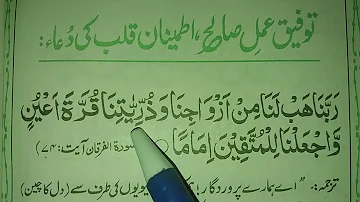 توفیق عمل صالح، اطمینان قلب کی دُعاء:
رَبَّنَا هَبْ لَنَا مِنْ اَزْوَاجِنَا وَذُرِّيّٰتِنَا قُرَّةَ اَعْيُنٍ
وَّاجْعَلْنَا لِلْمُتَّقِيْنَ اِمَامًا ○ سورۃ الفرقان آیت: ۷۴)
ترجمہ:- "اے ہمارے پروردگار! بیویوں کی طرف سے (دل کا چین)